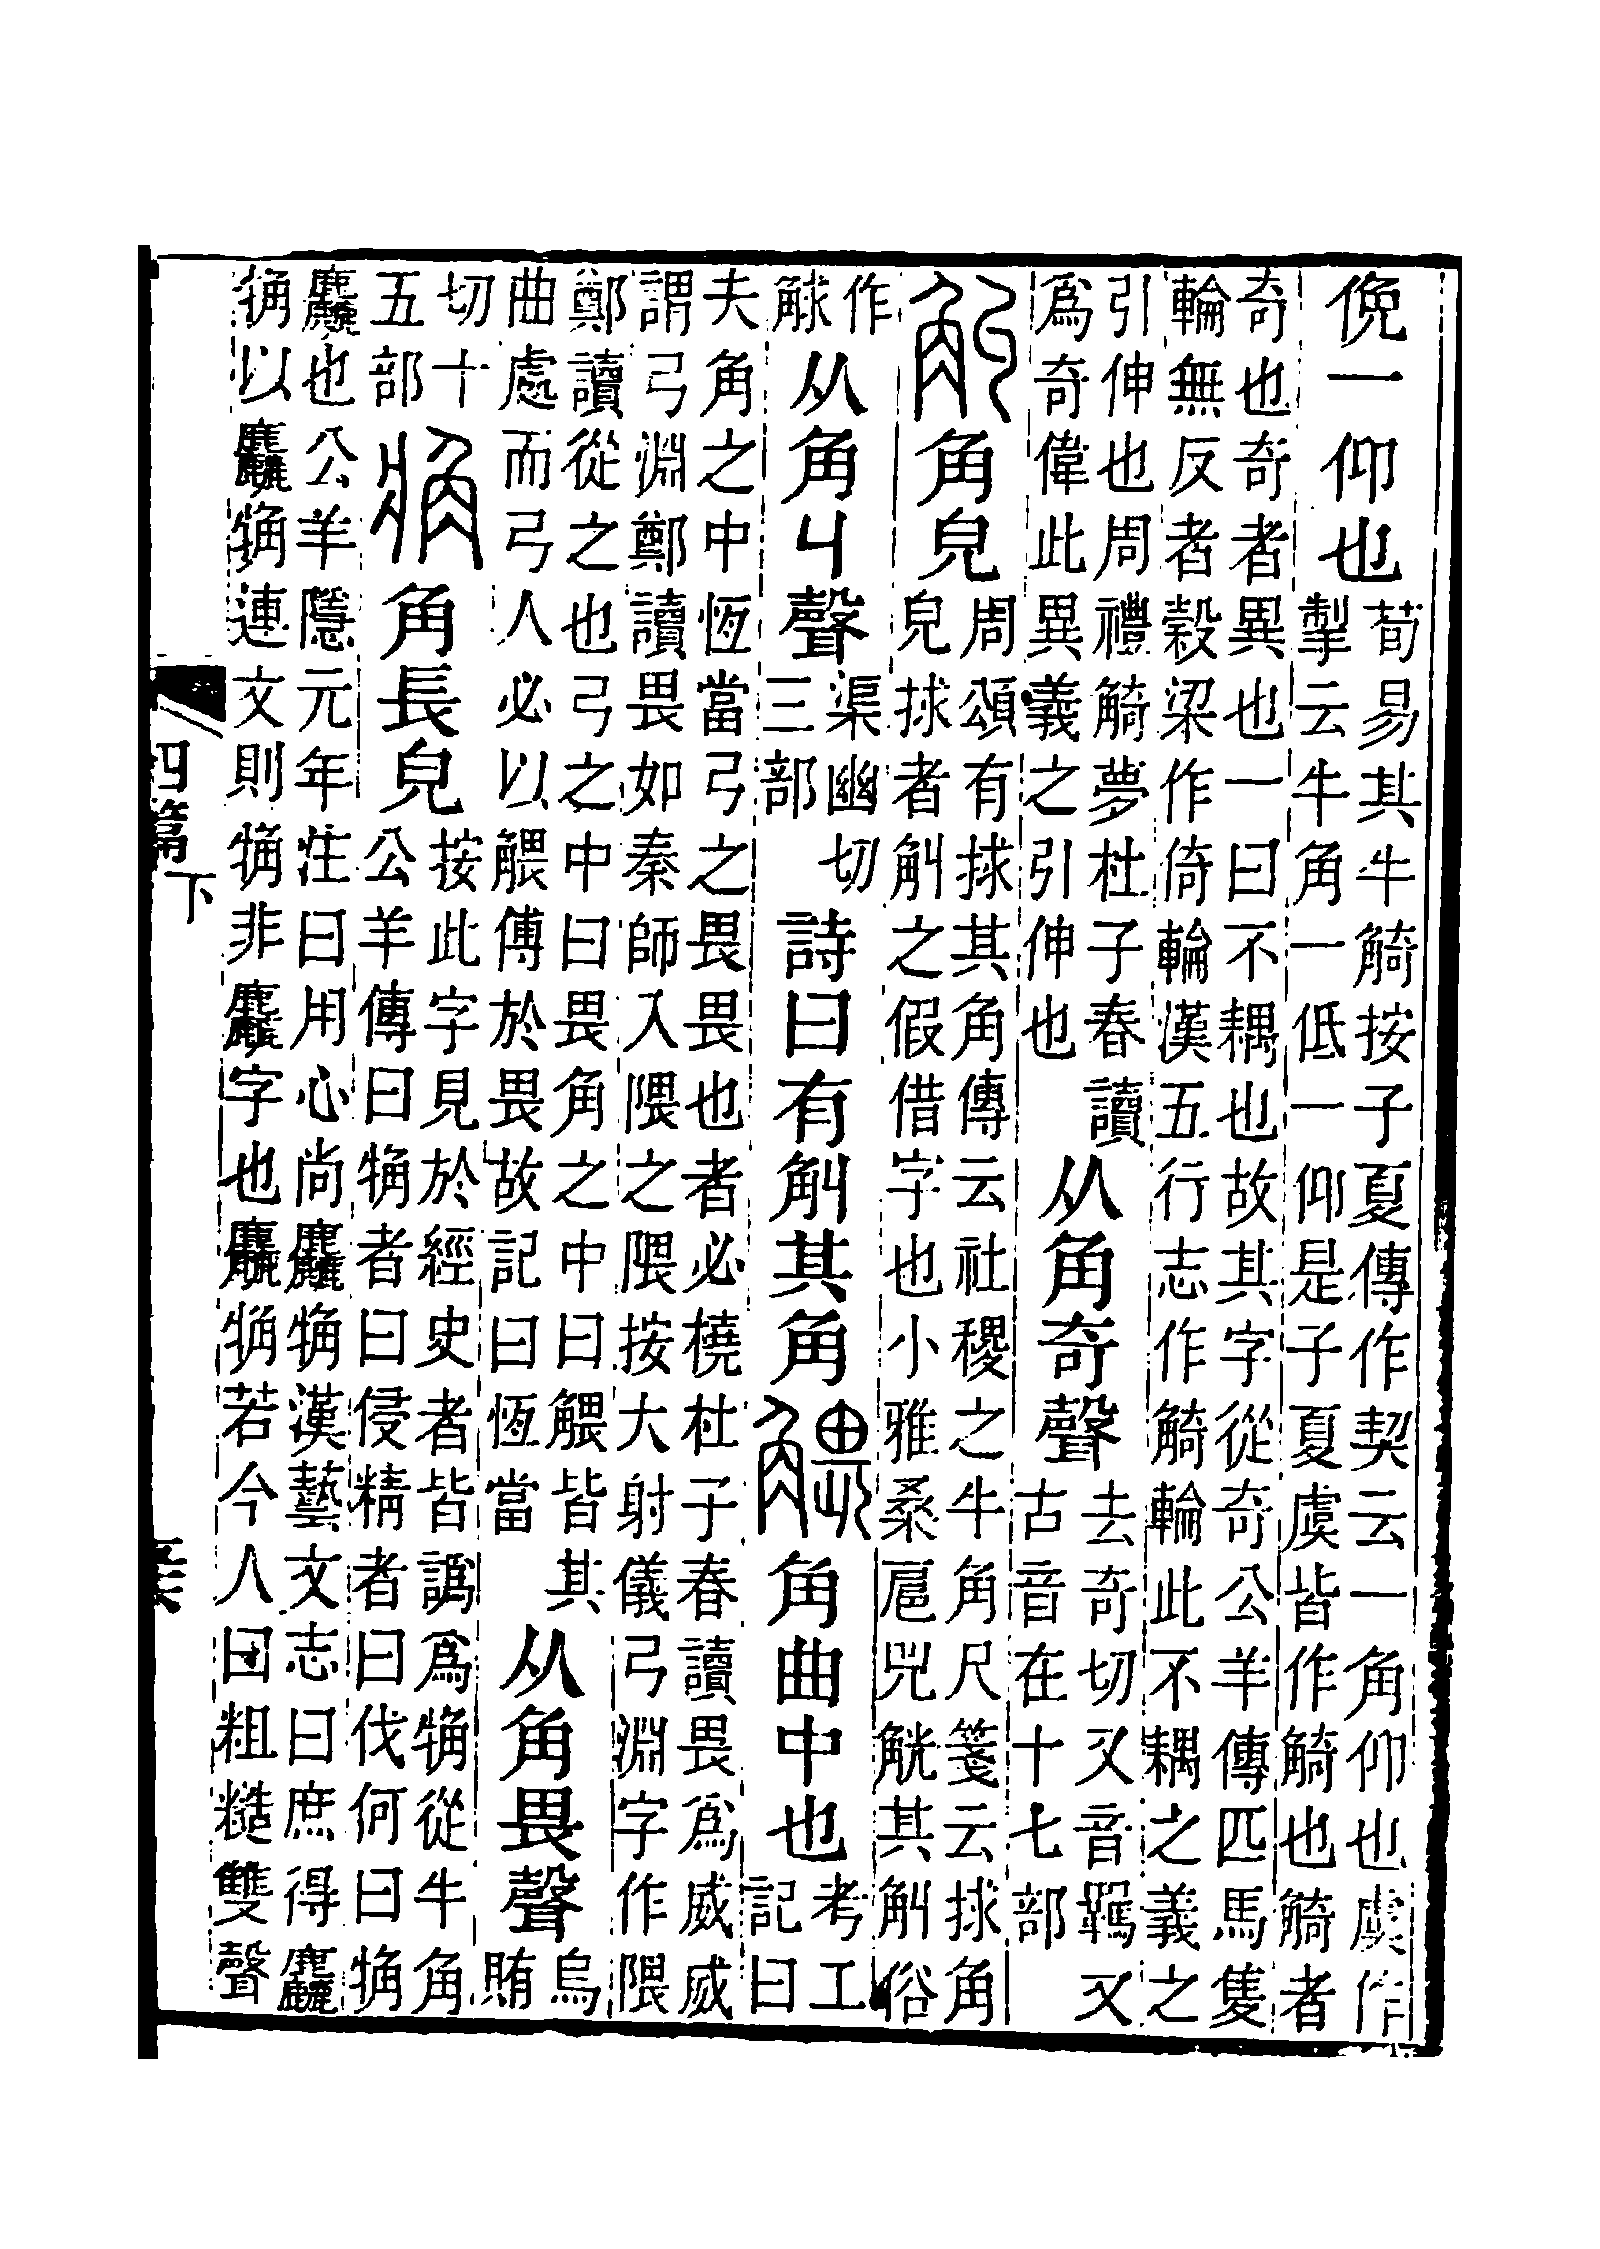 俛一仰也荀易其牛觭按子夏傳作契云一角仰也虞作
掣云牛角一低一仰是子夏虞皆作觭也觭者
奇也奇者異也一曰不耦也故其字從奇公羊傳匹馬隻
輪無反者榖梁作倚輪漢五行志作觭輪此不耦之義之
引伸也周禮觭夢杜子春讀
爲奇偉此異義之引伸也
从角奇聲去奇切又音羈又
古音在十七部
觓角皃周頌有捄其角傳云社稷之牛角尺箋云捄角
皃捄者觓之假借字也小雅桑扈兕觥其觓俗
作
觩
从角丩聲渠幽切
三部
詩曰有觓其角
䚈角曲中也考工
記曰
夫角之中恆當弓之畏畏也者必橈杜子春讀畏爲威威
謂弓淵鄭讀畏如秦師入隈之隈按大射儀弓淵字作隈
鄭讀從之也弓之中曰畏角之中曰䚈皆其
曲處而弓人必以䚈傅於畏故記曰恆當
从角畏聲烏
賄
切十
五部
角長皃按此字見於經史者皆譌爲觕從牛角
公羊傳曰觕者曰侵精者曰伐何曰觕
麤也公羊隱元年注曰用心尚麤觕漢藝文志曰庶得麤
觕以麤觕連文則觕非麤字也麤觕若今人曰粗糙雙聲
四篇下